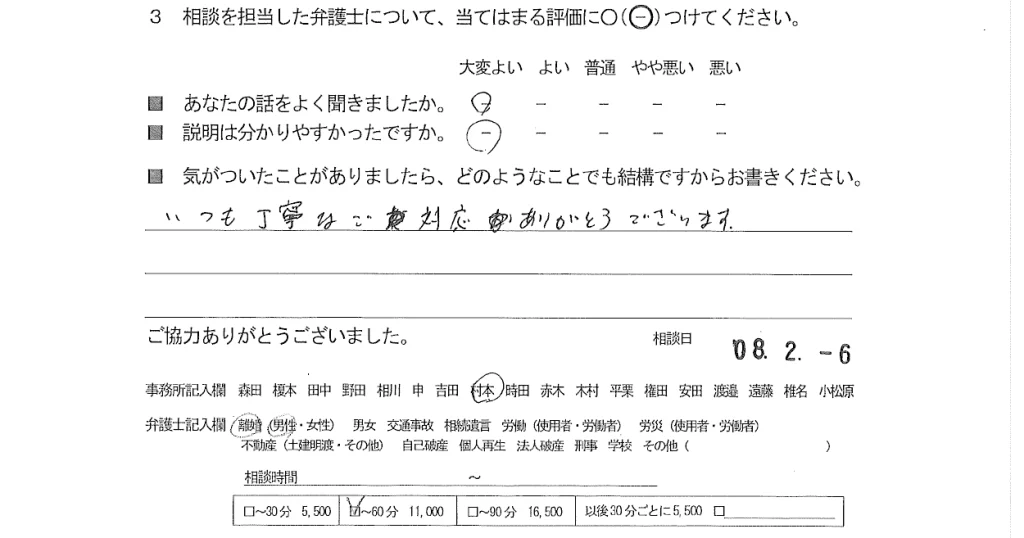 3 相談を担当した弁護士について、当てはまる評価に〇(－)つけてください。
大変よい よい 普通 やや悪い 悪い
■ あなたの話をよく聞きましたか。 － － － － －
■ 説明は分かりやすかったですか。 － － － － －
■ 気がついたことがありましたら、どのようなことでも結構ですからお書きください。
いつも丁寧なご対応ありがとうございます。
ご協力ありがとうございました。 相談日 '08. 2. -6
事務所記入欄 森田 榎本 田中 野田 相川 申 吉田 村本 時田 赤木 木村 平栗 権田 安田 渡邉 遠藤 椎名 小松原
弁護士記入欄 離婚 (男性・女性) 男女 交通事故 相続遺言 労働 (使用者・労働者) 労災 (使用者・労働者)
不動産 (土建明渡・その他) 自己破産 個人再生 法人破産 刑事 学校 その他 ( )
相談時間 ～
□～30分 5,500 ☑～60分 11,000 □～90分 16,500 以後30分ごとに5,500 □